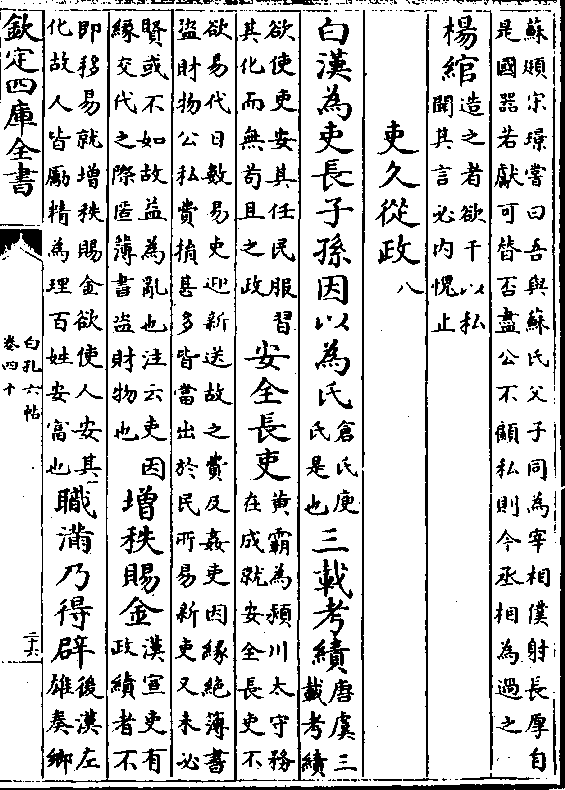 蘇頲宋璟嘗曰吾與蘇氏父子同為宰相僕射長厚自
是國器若獻可替否盡公不顧私則今丞相為過之
楊綰造之者欲干以私
聞其言必内愧止
吏久從政八
白漢為吏長子孫因以為氏倉氏庾
氏是也三載考績唐虞三
載考績
欲使吏安其任民服習
其化而無苟且之政安全長吏黄霸為潁川太守務
在成就安全長吏不
欲易代曰數易吏迎新送故之費及姦吏因緣絶簿書
盜財物公私費損甚多皆當出於民所易新吏又未必
賢或不如故益為亂也注云吏因
緣交代之際匿簿書盜財物也增秩賜金漢宣吏有
政績者不
即移易就增秩賜金欲使人安其
化故人皆勵精為理百姓安富也職滿乃得辟後漢左
雄奏鄉
欽定四庫全書
白孔六帖
卷四十
二十六